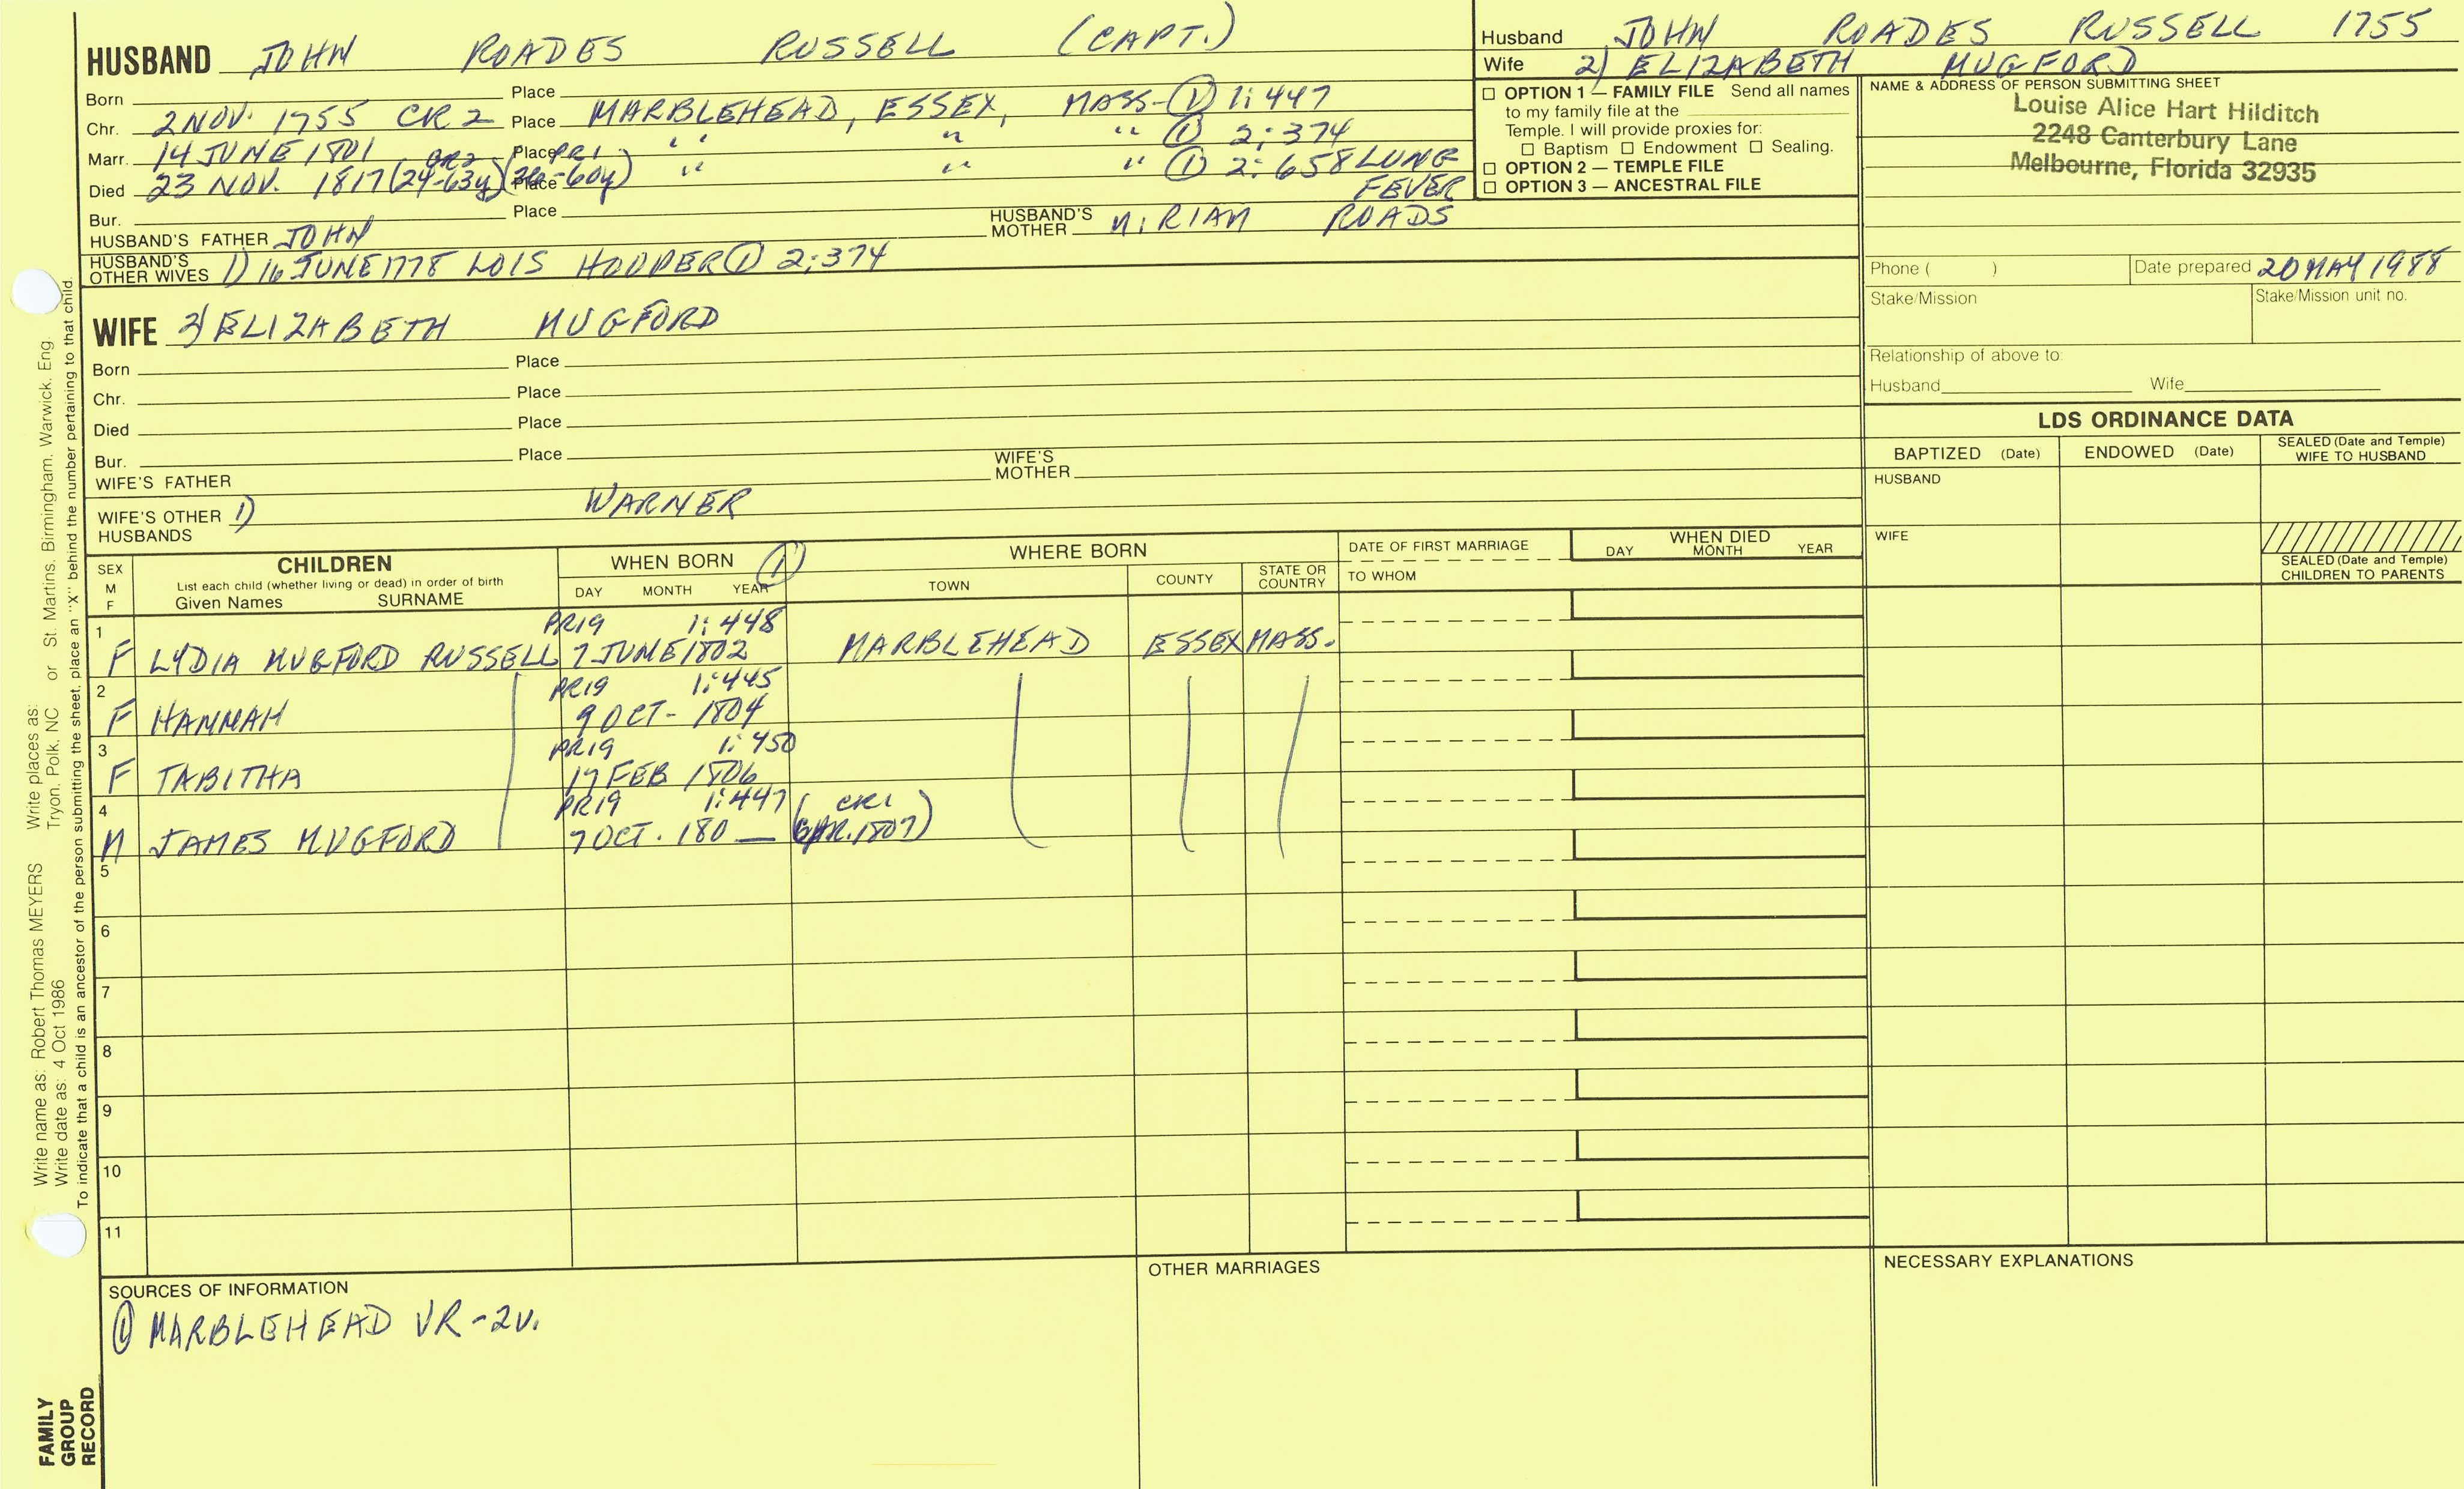 HUSBAND JOHN ROADES RUSSELL (CAPT.)
Born Place
Chr. 2 NOV. 1755 CR 2 Place MARBLEHEAD, ESSEX, MASS- ① 1:447
Marr. 14 JUNE 1801 Place " " " ① 2:374
Died 23 NOV. 1817 GR2 (24-63y) PR1 -60y) Place " " " ① 2:658 LUNG FEVER
Bur. Place
HUSBAND'S FATHER JOHN HUSBAND'S MOTHER MIRIAM ROADS
HUSBAND'S OTHER WIVES 1) 16 JUNE 1778 LOIS HOOPER ① 2:374
Husband JOHN ROADES RUSSELL 1755
Wife 2) ELIZABETH MUGFORD
☐ OPTION 1 — FAMILY FILE Send all names
to my family file at the
Temple. I will provide proxies for:
☐ Baptism ☐ Endowment ☐ Sealing.
☐ OPTION 2 — TEMPLE FILE
☐ OPTION 3 — ANCESTRAL FILE
NAME & ADDRESS OF PERSON SUBMITTING SHEET
Louise Alice Hart Hilditch
2248 Canterbury Lane
Melbourne, Florida 32935
Phone ( ) Date prepared 20 MAY 1988
Stake/Mission Stake/Mission unit no.
Relationship of above to:
Husband Wife
WIFE 2) ELIZABETH MUGFORD
Born Place
Chr. Place
Died Place
Bur. Place
WIFE'S FATHER WIFE'S MOTHER
WIFE'S OTHER HUSBANDS 1) WARNER
LDS ORDINANCE DATA
BAPTIZED (Date) ENDOWED (Date) SEALED (Date and Temple) WIFE TO HUSBAND
HUSBAND
WIFE
SEALED (Date and Temple) CHILDREN TO PARENTS
SEX M F
CHILDREN
List each child (whether living or dead) in order of birth
Given Names SURNAME
WHEN BORN ①
DAY MONTH YEAR
WHERE BORN
TOWN COUNTY STATE OR COUNTRY
DATE OF FIRST MARRIAGE
TO WHOM
WHEN DIED
DAY MONTH YEAR
1 PR19 1:448
F LYDIA MUGFORD RUSSELL 7 JUNE 1802 MARBLEHEAD ESSEX MASS.
2 PR19 1:445
F HANNAH 9 OCT- 1804
3 PR19 1:450
F TABITHA 17 FEB 1806
4 PR19 1:447 ( CR1
M JAMES MUGFORD 7 OCT. 180 — 1807)
5
6
7
8
9
10
11
SOURCES OF INFORMATION
① MARBLEHEAD VR-2V.
OTHER MARRIAGES
NECESSARY EXPLANATIONS
Write name as: Robert Thomas MEYERS Write places as: St. Martins, Birmingham, Warwick, Eng
Write date as: 4 Oct 1986 Tryon, Polk, NC or
To indicate that a child is an ancestor of the person submitting the sheet, place an "X" behind the number pertaining to that child.
FAMILY
GROUP
RECORD